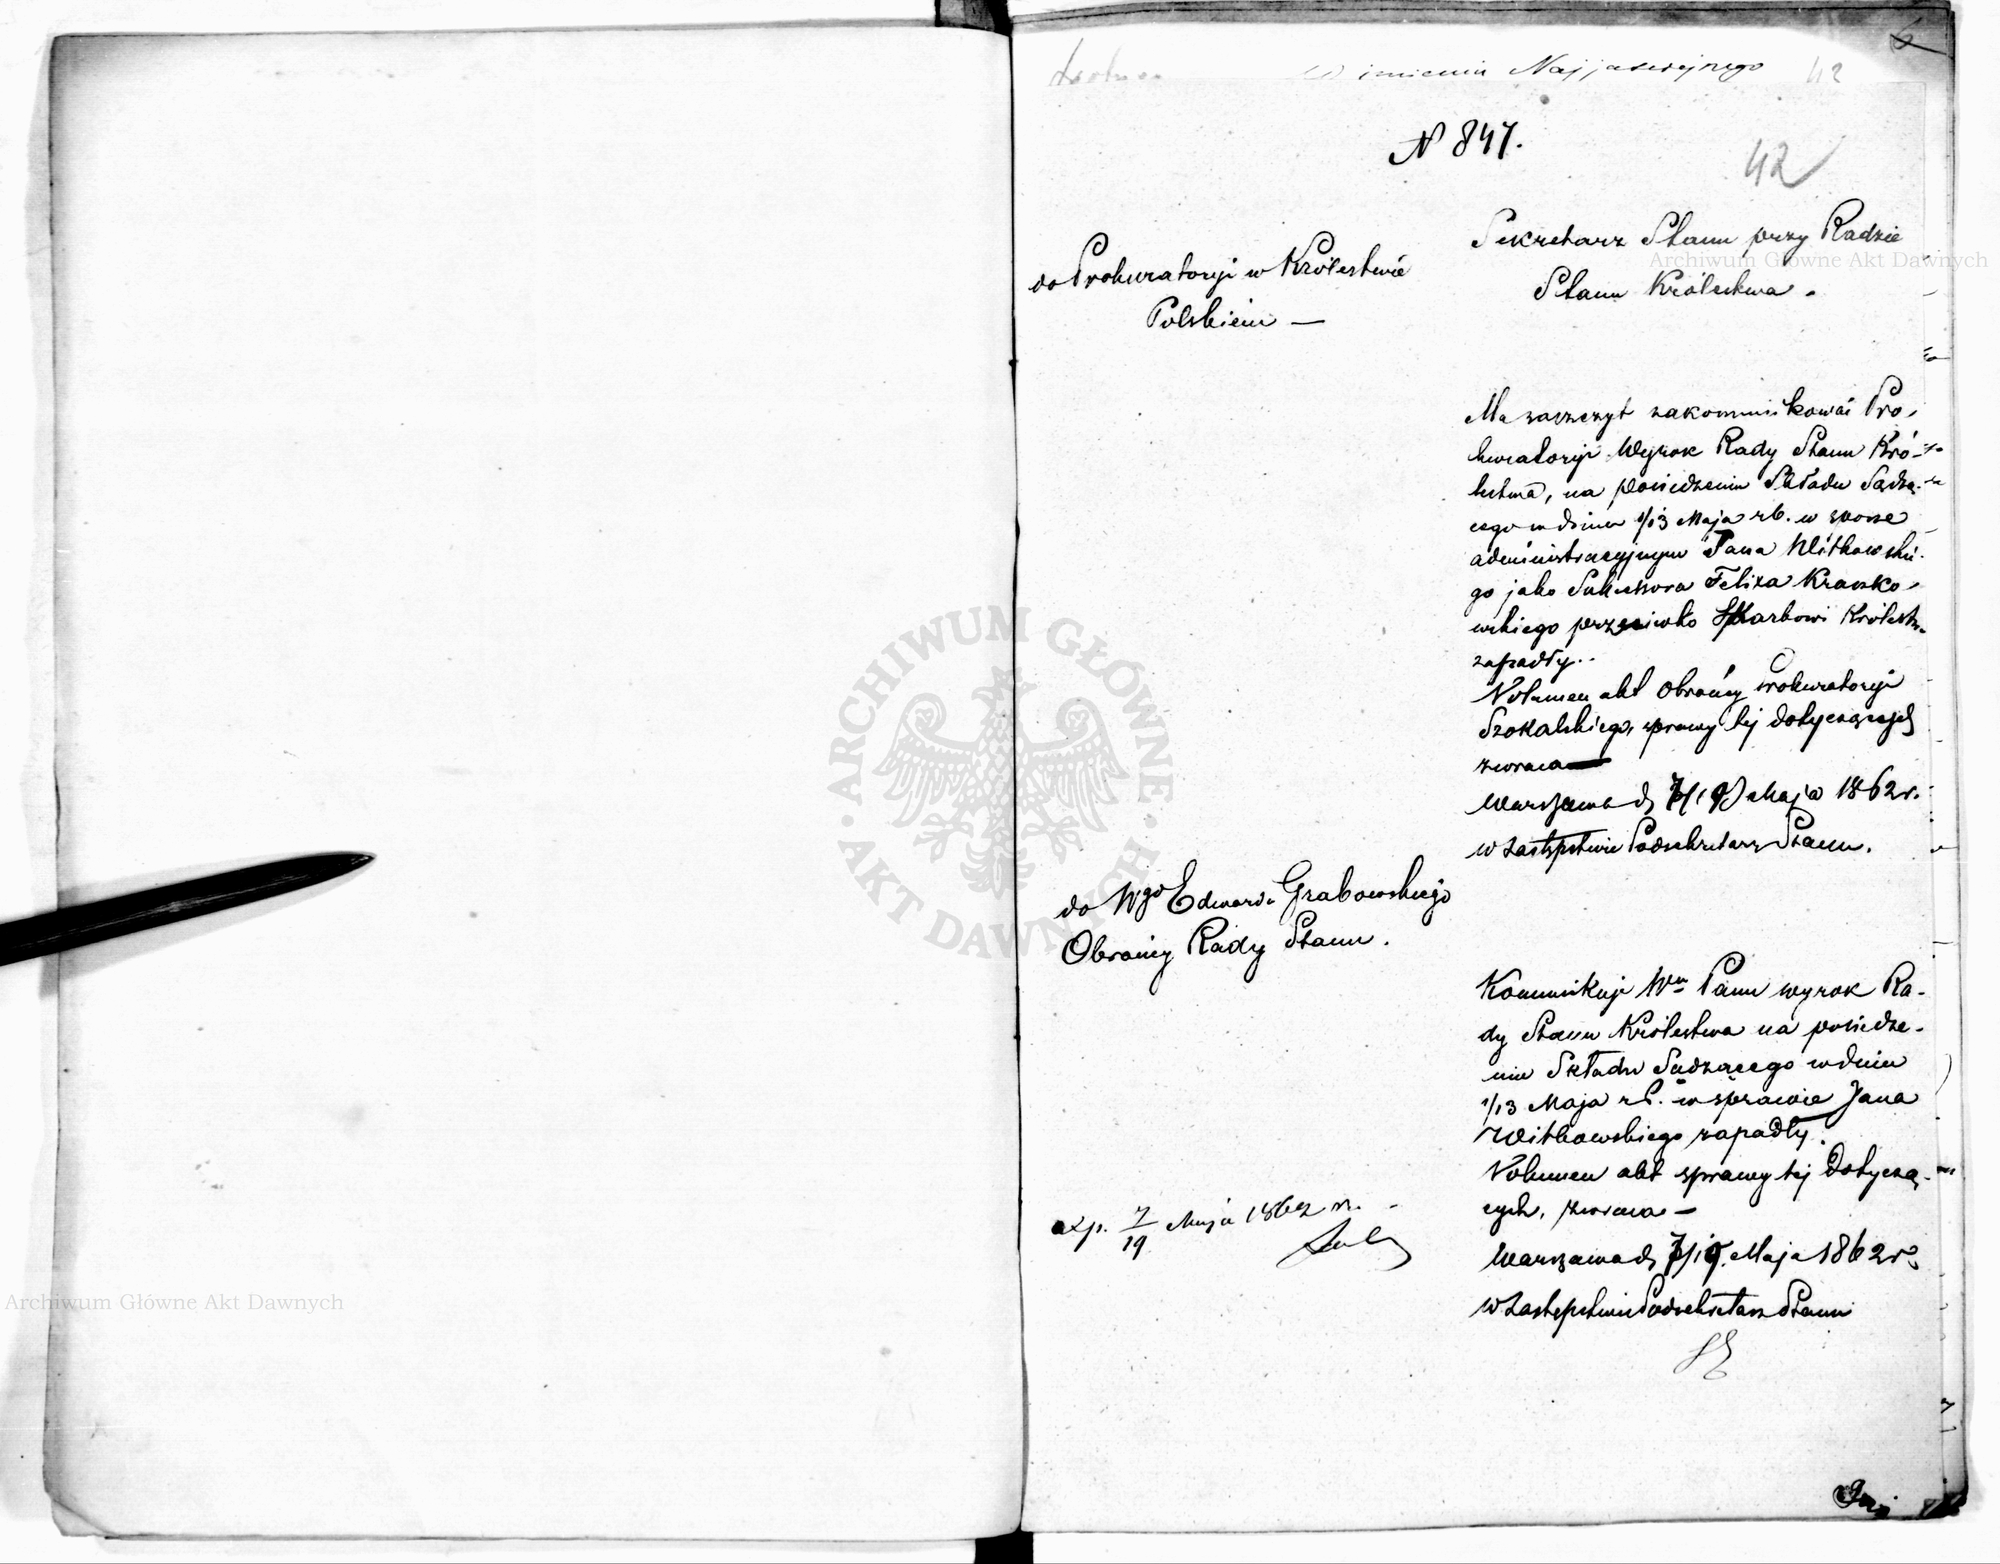 6
W imieniu Najjaśniejszego 42
N 847.
42
Sekretarz Stanu przy Radzie
Stanu Królestwa.
do Prokuratoryi w Królestwie
Polskiem —
Ma zaszczyt zakommunikować Pro-
kuratoryi Wyrok Rady Stanu Kró-
lestwa, na posiedzeniu Składu Sądzą-
cego w dniu 1/13 Maja r b. w sporze
administracyjnym Jana Witkowskie-
go jako Sukcessora Felixa Kraszko-
wskiego przeciwko Skarbowi Królestw.
zapadły.
Volumen akt Obrońcy Prokuratoryi
Szokalskiego, sprawy tej dotyczących
zwraca
Warszawa d. 7/19 Maja 1862 r.
w Zastępstwie Podsekretarz Stanu.
do Wgo Edwarda Grabowskiego
Obrońcy Rady Stanu.
Kommunikuje Wmu Panu wyrok Ra-
dy Stanu Królestwa na posiedze-
niu Składu Sądzącego w dniu
1/13 Maja r b. w sprawie Jana
Witkowskiego zapadły.
Volumen akt sprawy tej dotyczą-
cych, zwraca —
Warszawa d. 7/19. Maja 1862 r.
w Zastępstwie Podsekretarz Stanu
exp. 7/19 Maja 1862 r.
Archiwum Główne Akt Dawnych
ARCHIWUM GŁÓWNE
AKT DAWNYCH
Archiwum Główne Akt Dawnych